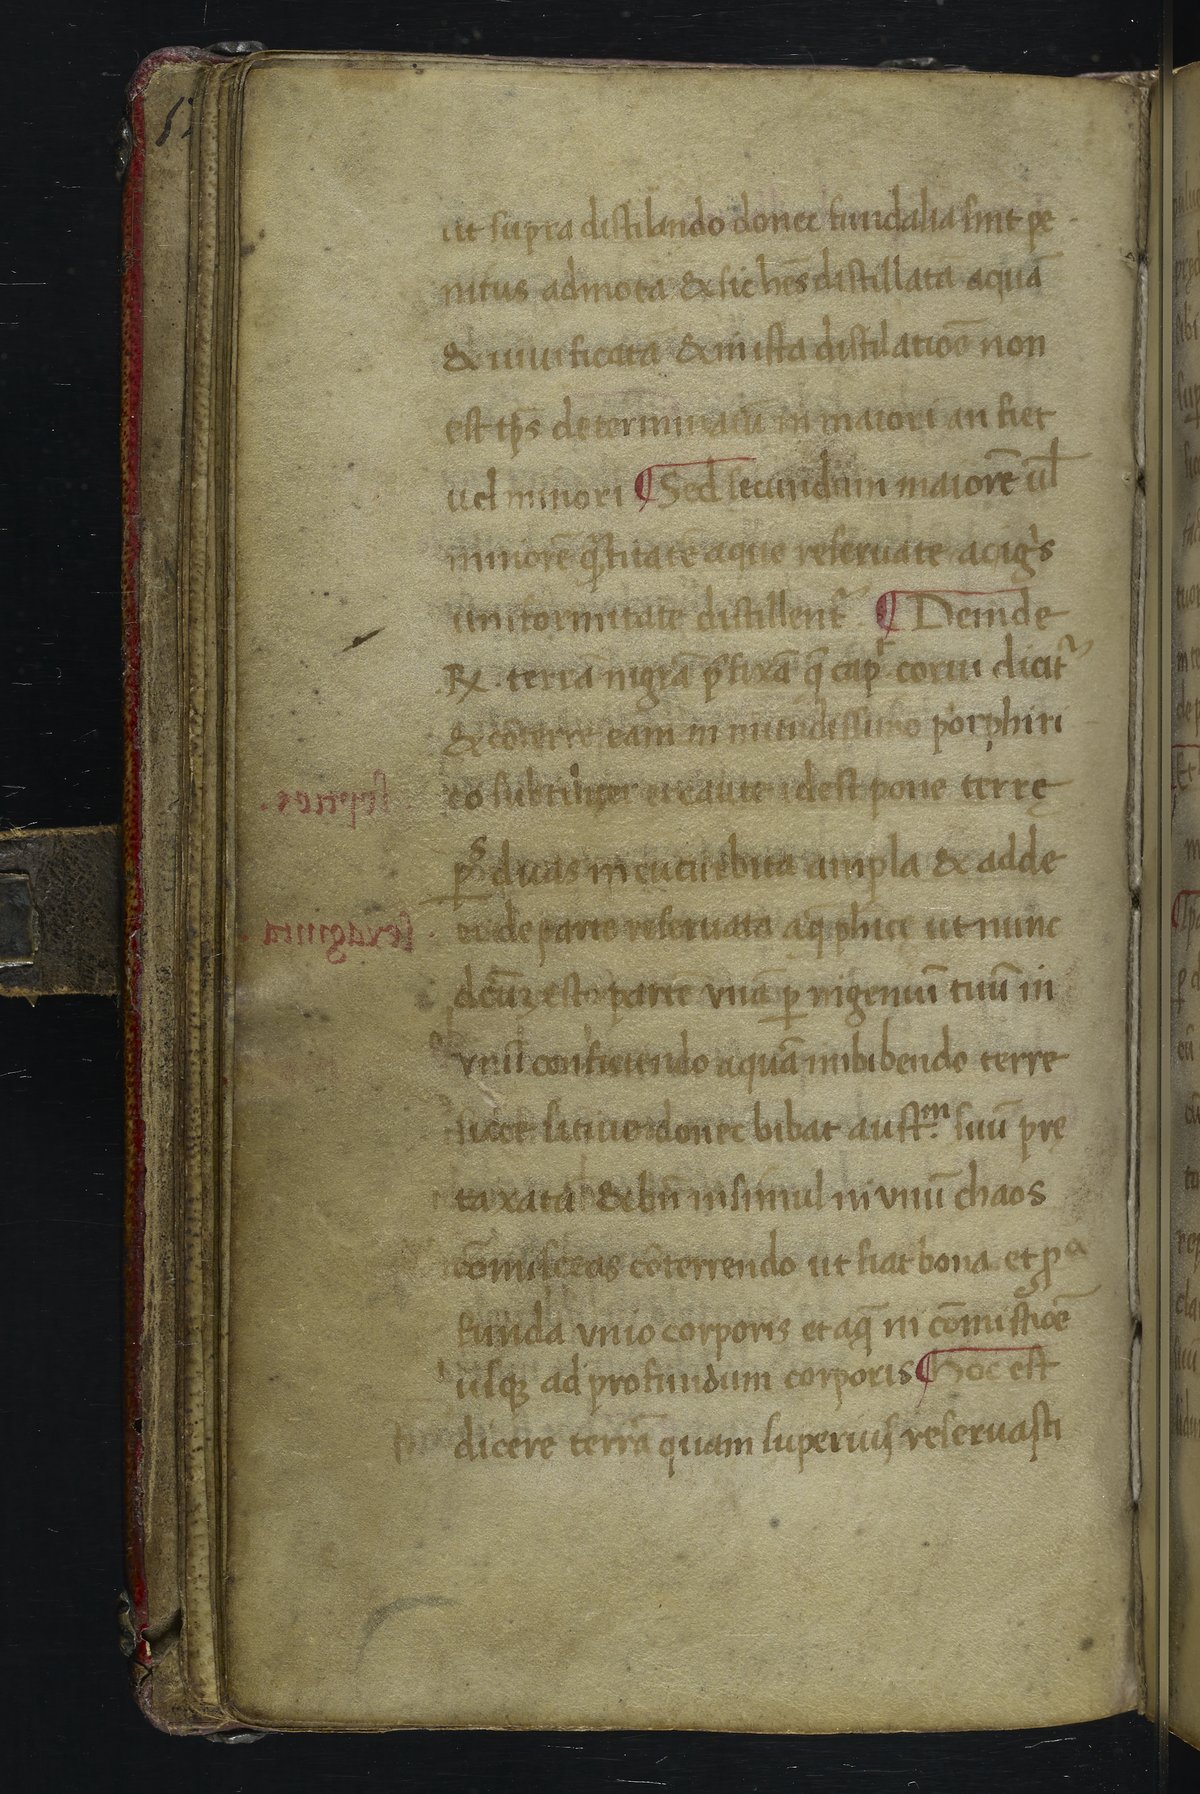 ut supra distilando donec fundalia sint pe
nitus admota & sic hēs distillatā aquā
& uiuificatā & in ista distilatiōe non
est tp̄s determinatū in maiori an fiet
uel minori ¶ Sed secundum maiorē ul̄
minorē quātitatē aque reseruate ac ignis
uniformitate distillent᷑ ¶ Deinde
℞ terrā nigrā p̄fixā q̄ cap᷑ corui dicit᷑
& cōterre eam in nitidissimo porphiri
co subtiliter et caute idest pone terrę
ꝑs duas in cucurbita ampla & adde
ei de parte reseruata aq̄ phīce ut nunc
dcūꝫ esto partē vnā ꝑ ingeniū tuū in
vnū conficiendo aquā imbibendo terre
sicce sitiue donec bibat aust.m suū prę
taxatā & bn̄ insimul in vnū chaos
cōmisceas cōterrendo ut fiat bona et pa
funda vnio corporis et aq̄ in cōmistiōe
usqꝫ ad profundum corporis ¶ Hoc est
dicere terrā quam superius reseruasti